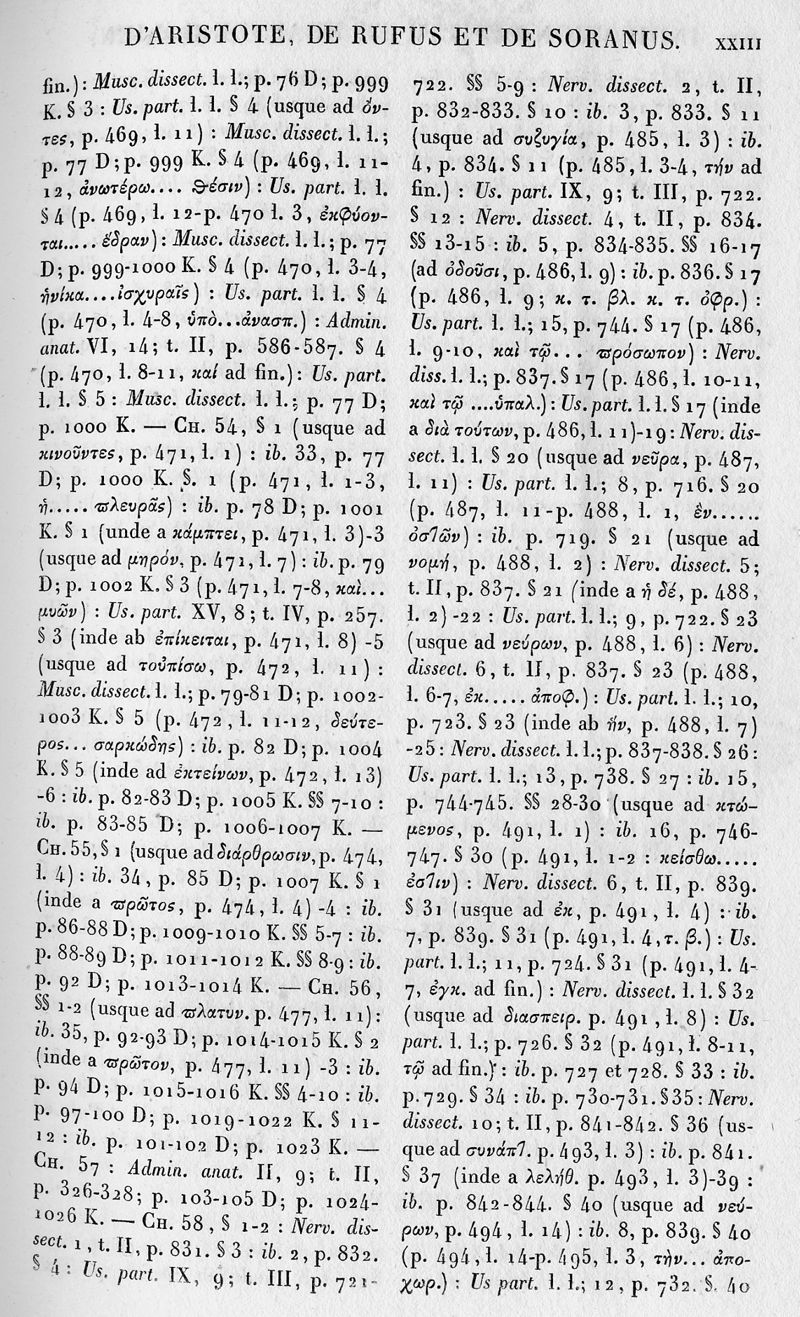 D'ARISTOTE, DE RUFUS ET DE SORANUS. XXIII
fin.) : Musc. dissect. l. l.; p. 76 D; p. 999
K. § 3 : Us. part. l. l. § 4 (usque ad ὄν-
τες, p. 469, l. 11) : Musc. dissect. l. l.;
p. 77 D; p. 999 K. § 4 (p. 469, l. 11-
12, ἀνωτέρω.... Θέσιν) : Us. part. l. l.
§ 4 (p. 469, l. 12-p. 470 l. 3, ἐκφύον-
ται..... ἕδραν) : Musc. dissect. l. l.; p. 77
D; p. 999-1000 K. § 4 (p. 470, l. 3-4,
ἡνίκα....ἰσχυραῖς) : Us. part. l. l. § 4
(p. 470, l. 4-8, ὑπὸ...ἀνασπ.) : Admin.
anat. VI, 14; t. II, p. 586-587. § 4
(p. 470, l. 8-11, καί ad fin.) : Us. part.
l. l. § 5 : Musc. dissect. l. l.; p. 77 D;
p. 1000 K. — CH. 54, § 1 (usque ad
κινοῦντες, p. 471, l. 1) : ib. 33, p. 77
D; p. 1000 K. §. 1 (p. 471, l. 1-3,
ἡ..... πλευρᾶς) : ib. p. 78 D; p. 1001
K. § 1 (unde a κάμπτει, p. 471, l. 3)-3
(usque ad μηρόν, p. 471, l. 7) : ib. p. 79
D; p. 1002 K. § 3 (p. 471, l. 7-8, καὶ...
μυῶν) : Us. part. XV, 8; t. IV, p. 257.
§ 3 (inde ab ἐπίκειται, p. 471, l. 8) -5
(usque ad τοὐπίσω, p. 472, l. 11) :
Musc. dissect. l. l.; p. 79-81 D; p. 1002-
1003 K. § 5 (p. 472, l. 11-12, δεύτε-
ρος... σαρκώδης) : ib. p. 82 D; p. 1004
K. § 5 (inde ad ἐκτείνων, p. 472, l. 13)
-6 : ib. p. 82-83 D; p. 1005 K. §§ 7-10 :
ib. p. 83-85 D; p. 1006-1007 K. —
CH. 55, § 1 (usque ad διάρθρωσιν, p. 474,
l. 4) : ib. 34, p. 85 D; p. 1007 K. § 1
(inde a πρῶτος, p. 474, l. 4) -4 : ib.
p. 86-88 D; p. 1009-1010 K. §§ 5-7 : ib.
p. 88-89 D; p. 1011-1012 K. §§ 8-9 : ib.
p. 92 D; p. 1013-1014 K. — CH. 56,
§§ 1-2 (usque ad πλατυν. p. 477, l. 11) :
ib. 35, p. 92-93 D; p. 1014-1015 K. § 2
(inde a πρῶτον, p. 477, l. 11) -3 : ib.
p. 94 D; p. 1015-1016 K. §§ 4-10 : ib.
p. 97-100 D; p. 1019-1022 K. § 11-
12 : ib. p. 101-102 D; p. 1023 K. —
CH. 57 : Admin. anat. II, 9; t. II,
p. 326-328; p. 103-105 D; p. 1024-
1026 K. — CH. 58, § 1-2 : Nerv. dis-
sect. 1, t. II, p. 831. § 3 : ib. 2, p. 832.
§ 4 : Us. part. IX, 9; t. III, p. 721-
722. §§ 5-9 : Nerv. dissect. 2, t. II,
p. 832-833. § 10 : ib. 3, p. 833. § 11
(usque ad συζυγία, p. 485, l. 3) : ib.
4, p. 834. § 11 (p. 485, l. 3-4, τήν ad
fin.) : Us. part. IX, 9; t. III, p. 722.
§ 12 : Nerv. dissect. 4, t. II, p. 834.
§§ 13-15 : ib. 5, p. 834-835. §§ 16-17
(ad ὀδοῦσι, p. 486, l. 9) : ib. p. 836. § 17
(p. 486, l. 9; κ. τ. βλ. κ. τ. ὀφρ.) :
Us. part. l. l.; 15, p. 744. § 17 (p. 486,
l. 9-10, καὶ τῷ... πρόσωπον) : Nerv.
diss. l. l.; p. 837. § 17 (p. 486, l. 10-11,
καὶ τῷ ....ὑπαλ.) : Us. part. l. l. § 17 (inde
a διὰ τούτων, p. 486, l. 11)-19 : Nerv. dis-
sect. l. l. § 20 (usque ad νεῦρα, p. 487,
l. 11) : Us. part. l. l.; 8, p. 716. § 20
(p. 487, l. 11-p. 488, l. 1, ἐν......
ὀστῶν) : ib. p. 719. § 21 (usque ad
νομή, p. 488, l. 2) : Nerv. dissect. 5;
t. II, p. 837. § 21 (inde a ἡ δέ, p. 488,
l. 2) -22 : Us. part. l. l.; 9, p. 722. § 23
(usque ad νεύρων, p. 488, l. 6) : Nerv.
dissect. 6, t. II, p. 837. § 23 (p. 488,
l. 6-7, ἐκ..... ἀποφ.) : Us. part. l. l.; 10,
p. 723. § 23 (inde ab ἥν, p. 488, l. 7)
-25 : Nerv. dissect. l. l.; p. 837-838. § 26 :
Us. part. l. l.; 13, p. 738. § 27 : ib. 15,
p. 744-745. §§ 28-30 (usque ad κτώ-
μενος, p. 491, l. 1) : ib. 16, p. 746-
747. § 30 (p. 491, l. 1-2 : κείσθω.....
ἐστιν) : Nerv. dissect. 6, t. II, p. 839.
§ 31 (usque ad ἐκ, p. 491, l. 4) : ib.
7, p. 839. § 31 (p. 491, l. 4, τ. β.) : Us.
part. l. l.; 11, p. 724. § 31 (p. 491, l. 4-
7, ἐγκ. ad fin.) : Nerv. dissect. l. l. § 32
(usque ad διασπειρ. p. 491, l. 8) : Us.
part. l. l.; p. 726. § 32 (p. 491, l. 8-11,
τῷ ad fin.) : ib. p. 727 et 728. § 33 : ib.
p. 729. § 34 : ib. p. 730-731. § 35 : Nerv.
dissect. 10; t. II, p. 841-842. § 36 (us-
que ad συνάπτ. p. 493, l. 3) : ib. p. 841.
§ 37 (inde a λελήθ. p. 493, l. 3)-39 :
ib. p. 842-844. § 40 (usque ad νεύ-
ρων, p. 494, l. 14) : ib. 8, p. 839. § 40
(p. 494, l. 14-p. 495, l. 3, τὴν... ἀπο-
χωρ.) : Us part. l. l.; 12, p. 732. §. 40